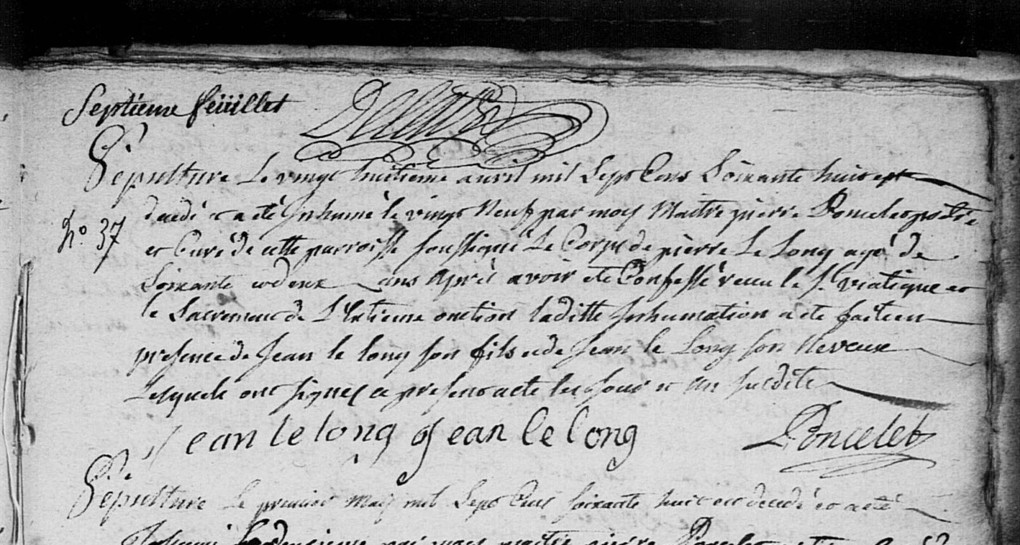 Septieme feüillet
Sepulture Le vingt huitieme avril mil Sept Cens Soixante huit est
decedé et a eté Inhumé le vingt Neuf par moy Maitre pierre Poncelet
N.° 37
et Curé de cette parroisse soussigné Le Corps de pierre Le Long agé de
Soixante et deux ans aprés avoir eté Confessé receu le S.t viatique et
le Sacrement de L'Extreme onction laditte Inhumation a eté faitte en
presence de Jean le long son fils et de Jean le Long son Neveux
Lesquels ont signés ce present acte les Jour et an susdits
Jean le long Jean le long Poncelet
Sepulture Le premier May mil Sept Cens soixante huit est decedé et a eté